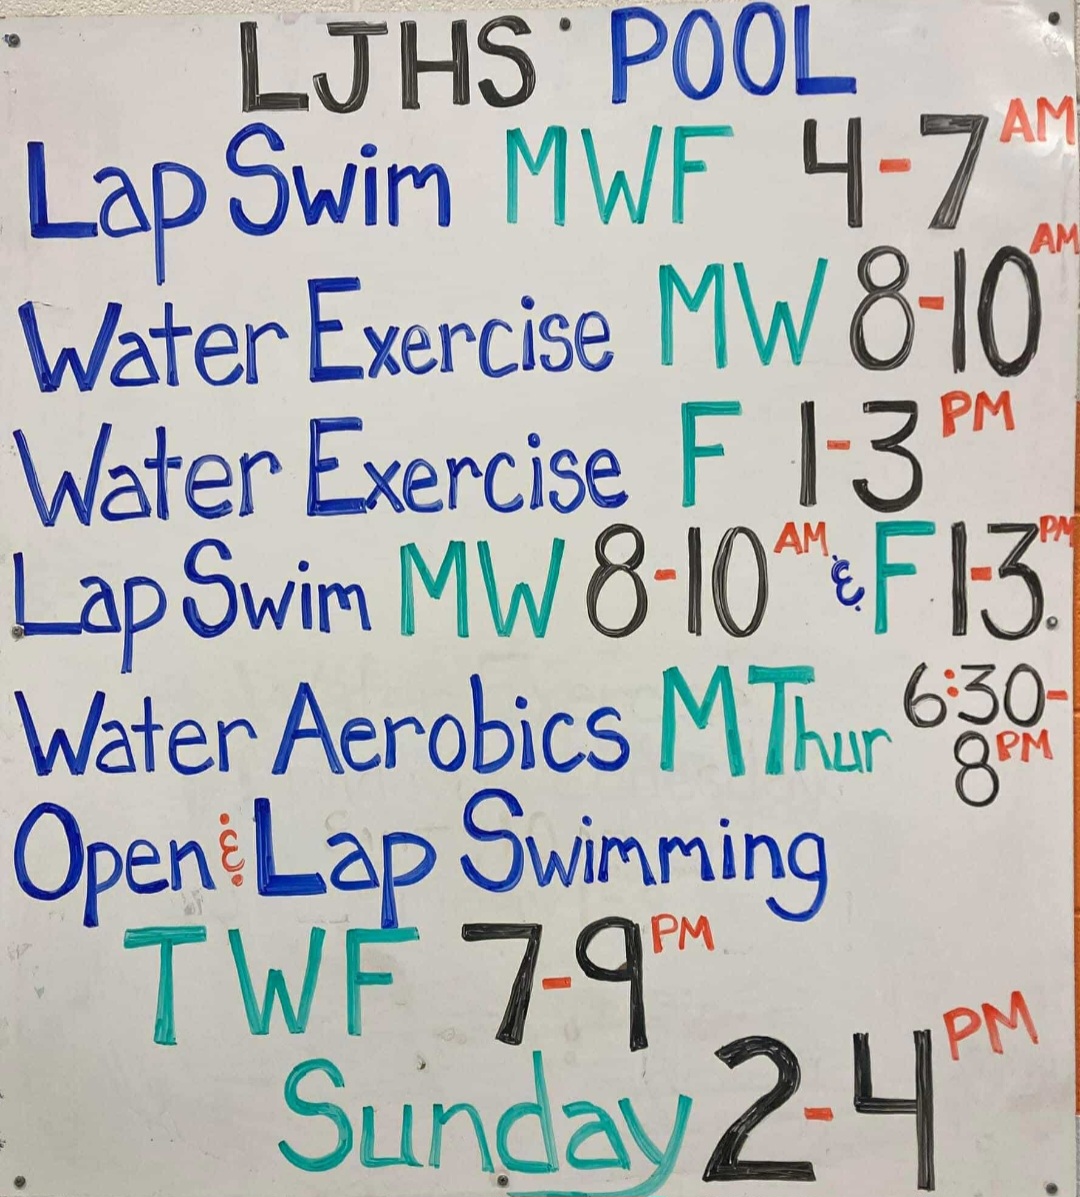 LJHS POOL
Lap Swim MWF 4-7 AM
Water Exercise MW 8-10 AM
Water Exercise F 1-3 PM
Lap Swim MW 8-10 AM & F 1-3 PM
Water Aerobics M Thur 6:30-
8 PM
Open & Lap Swimming
TWF 7-9 PM
Sunday 2-4 PM